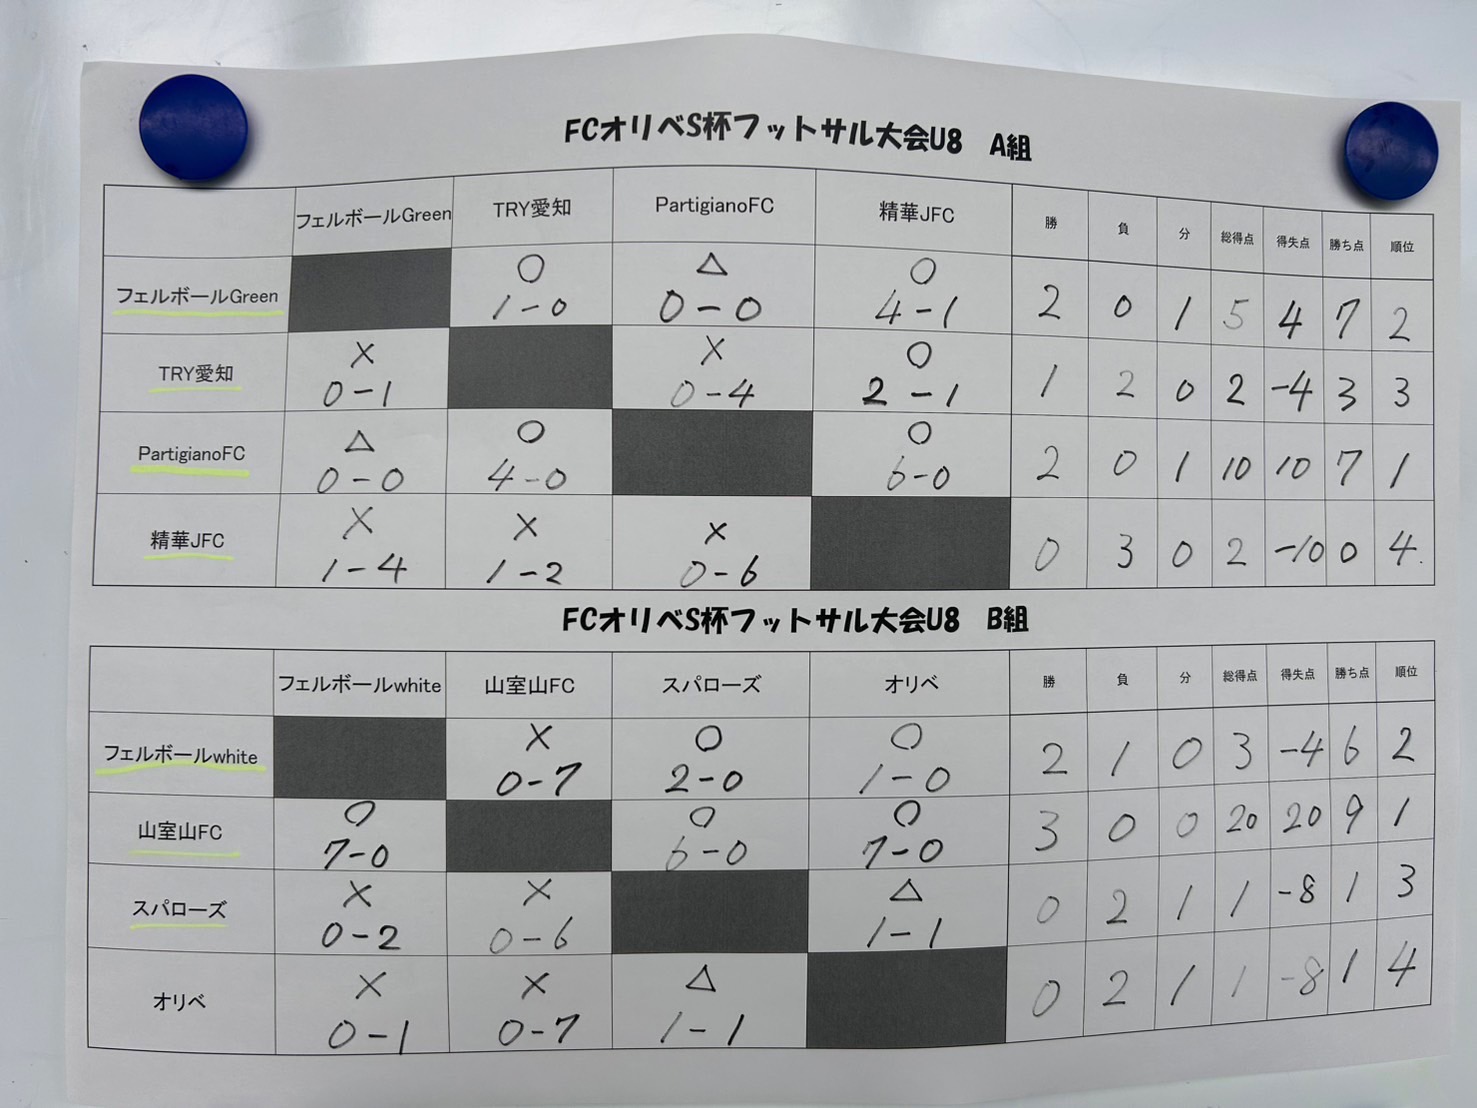 FCオリベS杯フットサル大会U8 A組
フェルボールGreen TRY愛知 PartigianoFC 精華JFC 勝 負 分 総得点 得失点 勝ち点 順位
フェルボールGreen ○ 1-0 △ 0-0 ○ 4-1 2 0 1 5 4 7 2
TRY愛知 × 0-1 × 0-4 ○ 2-1 1 2 0 2 -4 3 3
PartigianoFC △ 0-0 ○ 4-0 ○ 6-0 2 0 1 10 10 7 1
精華JFC × 1-4 × 1-2 × 0-6 0 3 0 2 -10 0 4.
FCオリベS杯フットサル大会U8 B組
フェルボールwhite 山室山FC スパローズ オリベ 勝 負 分 総得点 得失点 勝ち点 順位
フェルボールwhite × 0-7 ○ 2-0 ○ 1-0 2 1 0 3 -4 6 2
山室山FC ○ 7-0 ○ 6-0 ○ 7-0 3 0 0 20 20 9 1
スパローズ × 0-2 × 0-6 △ 1-1 0 2 1 1 -8 1 3
オリベ × 0-1 × 0-7 △ 1-1 0 2 1 1 -8 1 4